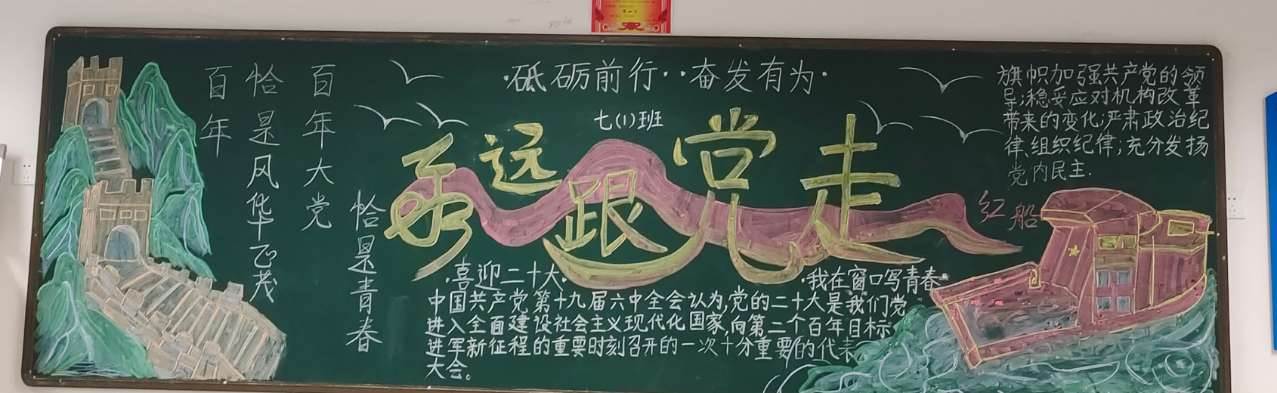 砥砺前行··奋发有为·
七(1)班
永远跟党走
百年大党
恰是风华正茂
百年
恰是青春
旗帜加强共产党的领
导;稳妥应对机构改革
带来的变化;严肃政治纪
律、组织纪律;充分发扬
党内民主.
红船
·喜迎二十大·
·我在窗口写青春·
中国共产党第十九届六中全会认为,党的二十大是我们党
进入全面建设社会主义现代化国家,向第二个百年目标
进军新征程的重要时刻召开的一次十分重要的代表
大会。